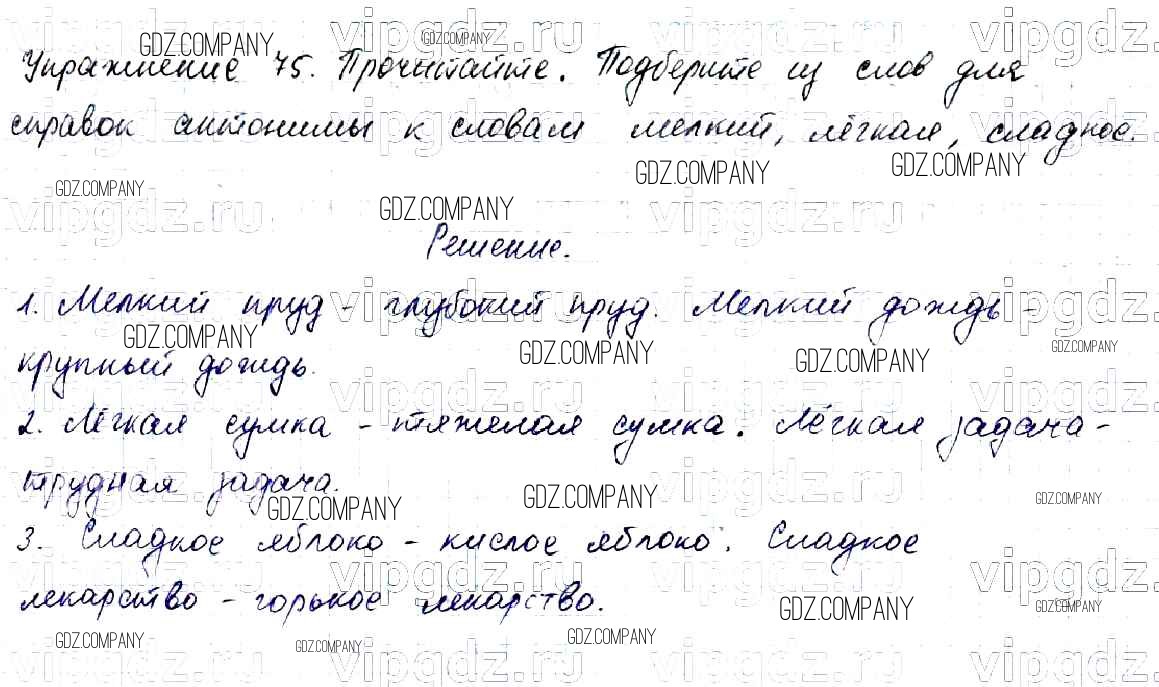 Упражнение 75. Прочитайте. Подберите из слов для
справок антонимы к словам мелкий, лёгкая, сладкое.
Решение.
1. Мелкий пруд - глубокий пруд. Мелкий дождь -
крупный дождь.
2. Лёгкая сумка - тяжелая сумка. Лёгкая задача -
трудная задача.
3. Сладкое яблоко - кислое яблоко. Сладкое
лекарство - горькое лекарство.
GDZ.COMPANY
vipgdz.ru